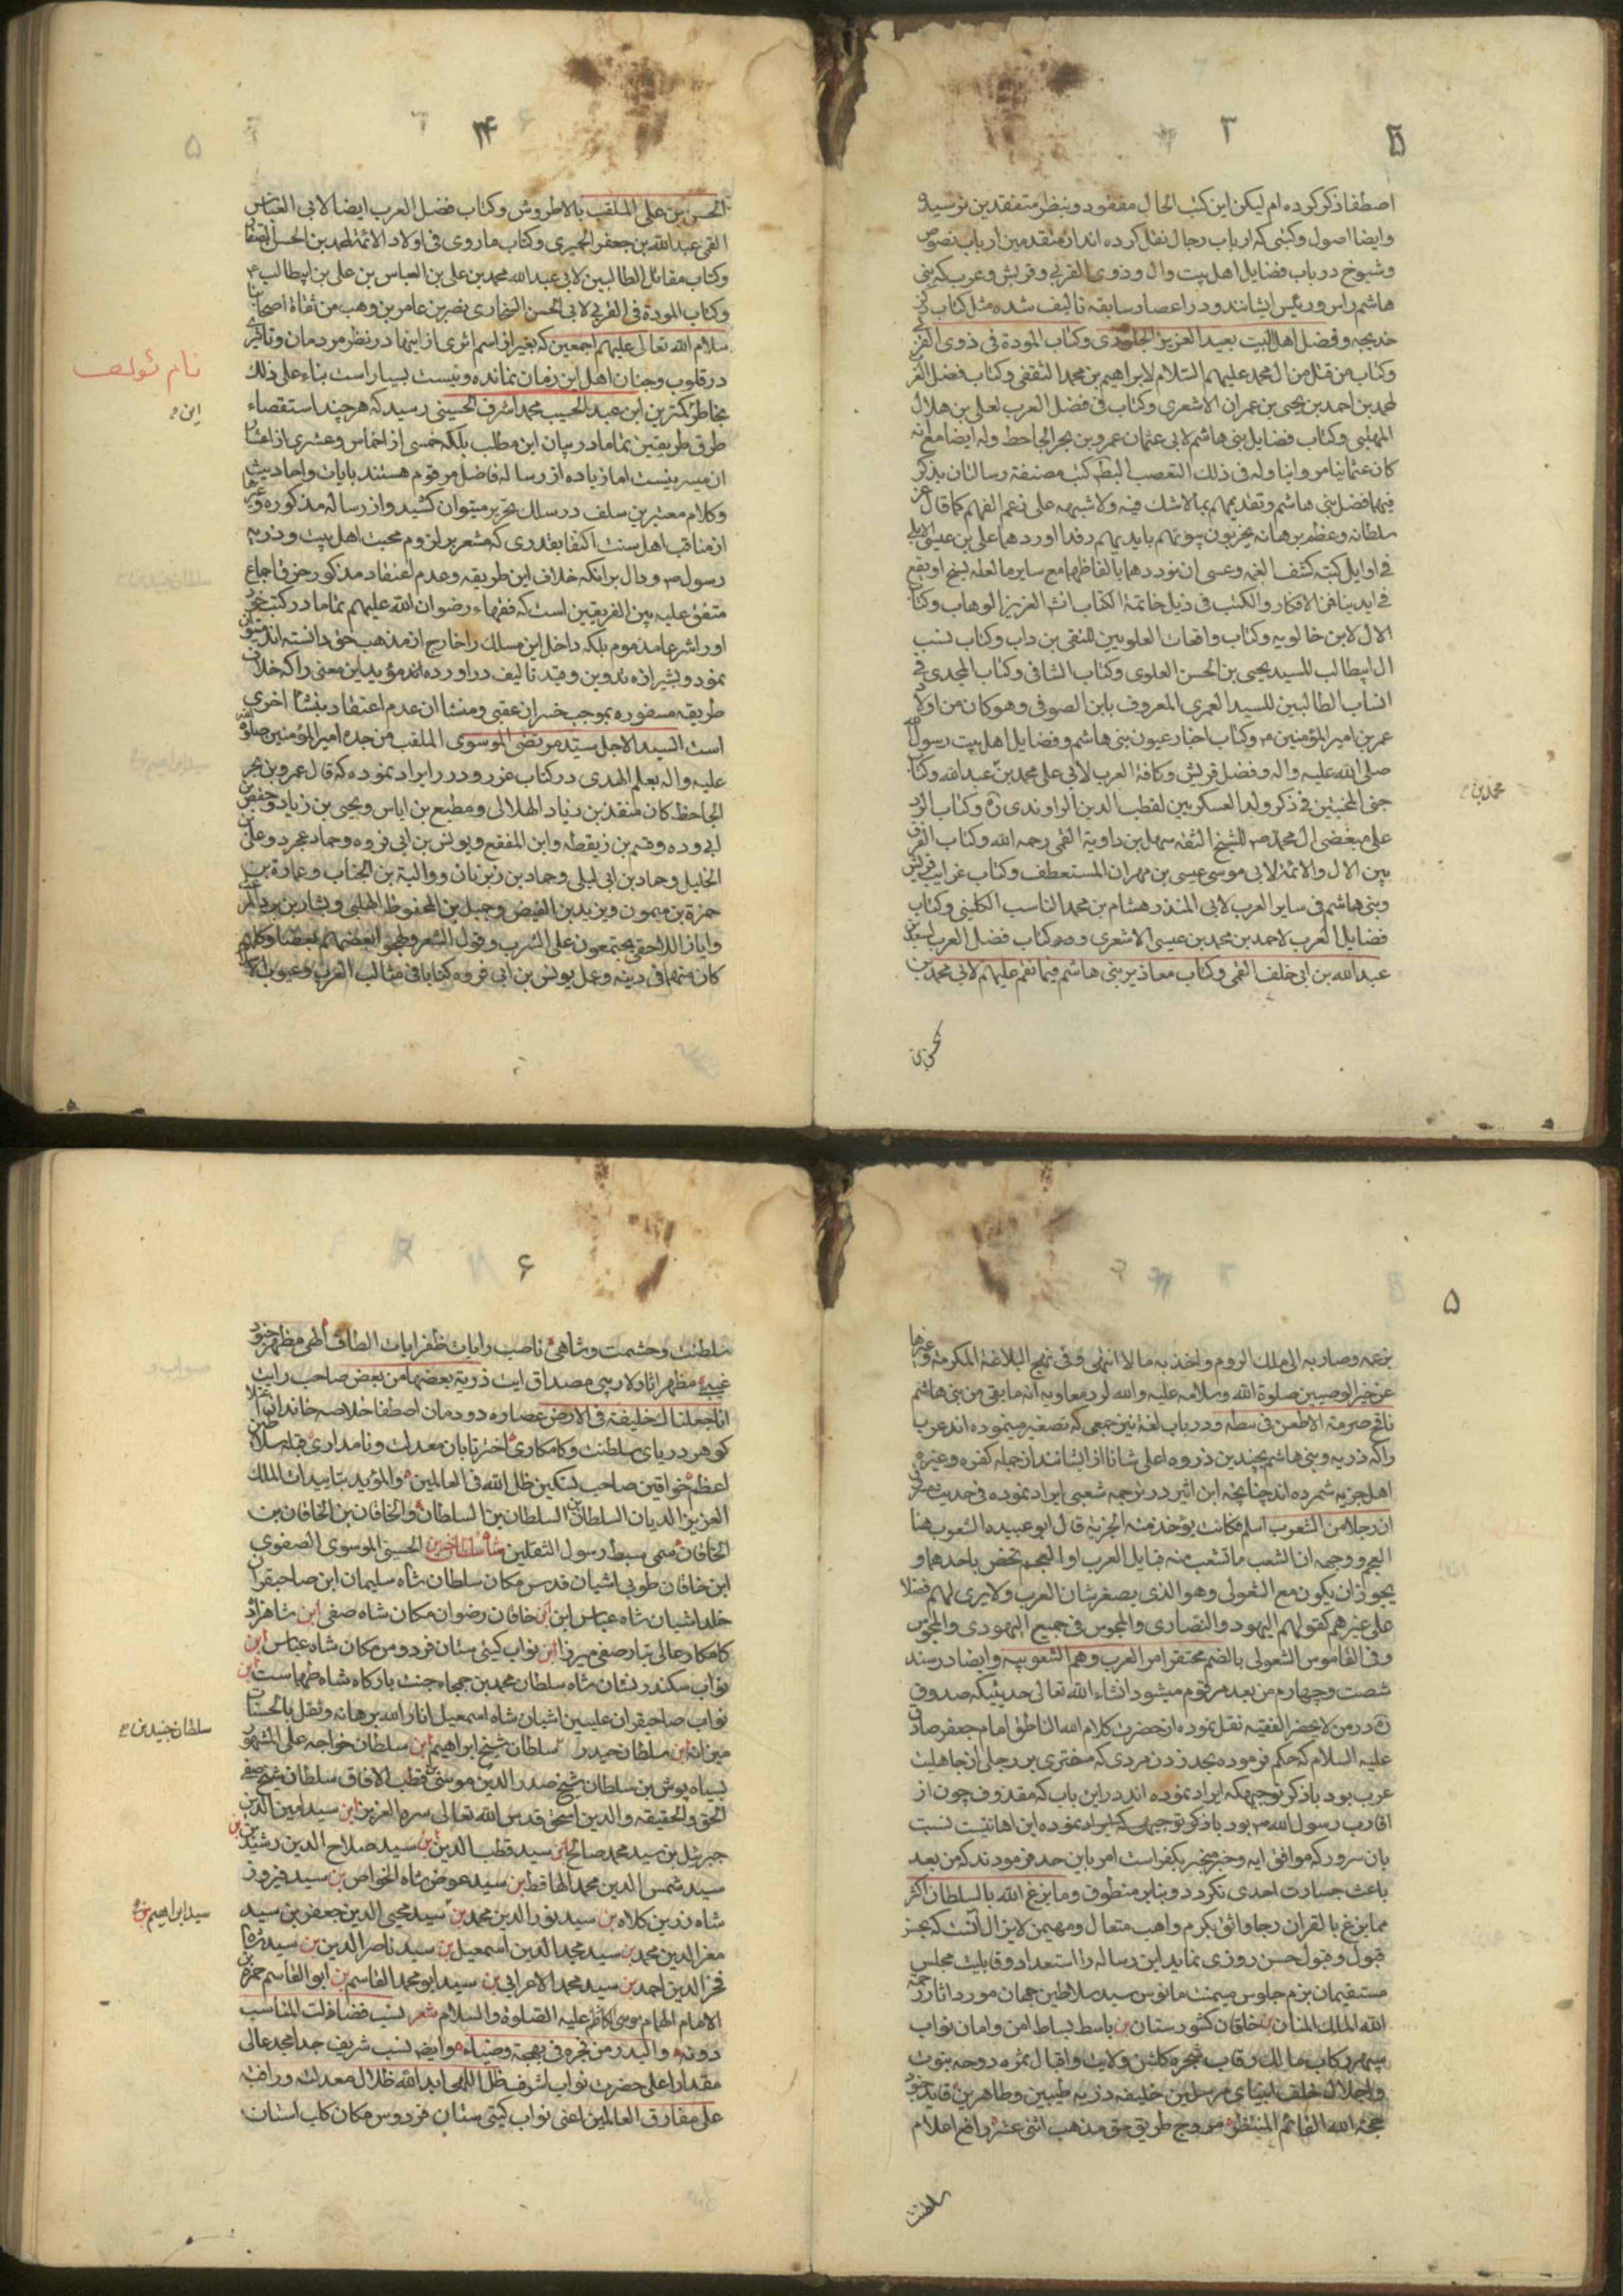 ۳
اصطفا ذکر کرده ام لیکن این کتب الحال مفقود و بنظر متفقدین نرسیده و
وایضا اصول و کتبی که ارباب رجال نقل کرده اند از متقدمین ارباب نصوص
وشیوخ در باب فضایل اهل بیت وال و ذوی القربی و قریش و عرب که بنی
هاشم راس و رئیس ایشانند و در اعصار سابقه تالیف شده مثل کتاب
خدیجه و فضل اهل البیت بعبد العزیز الجلودی و کتاب المودة فی ذوی القربی
وکتاب من قتل من ال محمد علیهم السلام لابراهیم بن محمد الثقفی و کتاب فضل العرب
لمحمد بن احمد بن یحیی بن عمران الاشعری و کتاب فی فضل العرب لعلی بن هلال
المهلبی و کتاب فضایل بنی هاشم لابی عثمان عمرو بن بحر الجاحظ وله ایضا مع انه
کان عثمانیا مروانیا وله فی ذلک التعصب کتب مصنفة رسالتان یذکر
فیهما فضل بنی هاشم و تقدیمهم بما لا شک فیه ولا شبهه علی زعم الفهم کما قال
سلطانه وعظم برهانه یخربون بیوتهم بایدیهم اوردهما علی بن عیسی الاربلی
فی اوایل کتبه کشف الغمه وعسی ان نوردهما بالفاظهما مع سایر ما لعله یسنح او یقع
فی ایدینا من الافکار والکتب فی ذیل خاتمة الکتاب انشا العزیز الوهاب وکتاب
الال لابن خالویه و کتاب واقعات العلویین للنقی بن داب و کتاب نسب
ال ابیطالب للسید یحیی بن الحسن العلوی و کتاب الشافی و کتاب المجدی فی
انساب الطالبین للسید العمری المعروف بابن الصوفی وهو کان من اولاد
عمر بن امیر المؤمنین و کتاب اخبار عیون بنی هاشم و فضایل اهل بیت رسول الله
صلی الله علیه واله و فضل قریش و کافة العرب لابی علی محمد بن عبدالله و کتاب
جنی الجنتین فی ذکر ولد العسکریین لقطب الدین الراوندی ره و کتاب الرد
علی مبغضی ال محمد للشیخ الثقه سهل بن زادویة القمی رحمه الله و کتاب الفرق
بین الال والائمة لابی موسی عیسی بن مهران المستعطف و کتاب غرایب قریش
وبنی هاشم فی سایر العرب لابی المنذر هشام بن محمد الناسب الکلبی و کتاب
فضایل العرب لاحمد بن محمد بن عیسی الاشعری و کتاب فضل العرب لسعد بن
عبدالله بن ابی خلف القمی و کتاب معاذیر بنی هاشم فیما نقم علیهم لابی محمد
الحسن بن
محمد بن
۴
الحسن بن علی الملقب بالاطروش و کتاب فضل العرب ایضا لابی العباس
القمی عبدالله بن جعفر الحمیری و کتاب ما روی فی اولاد الائمة لمحمد بن الحسن الصفار
و کتاب مقاتل الطالبین لابی عبدالله محمد بن علی بن العباس بن علی بن ابیطالب
و کتاب المودة فی القربی لابی الحسن نصر بن عامر بن وهب من ثقاة اصحابنا
سلام الله تعالی علیهم اجمعین که بغیر از اسم اثری از اینها در نظر مردمان و تاثیری
در قلوب و جنان اهل این زمان نمانده و نیست بسیار است بناء علی ذلک
بخاطر کمترین ابن عبد الحسیب محمد اشرف الحسینی رسید که هر چند استقصاء
طرق طریقین تماما در بیان این مطلب بلکه خمسی از اخماس و عشری از اعشار
ان میسر نیست اما زیاده از رساله فاضل مرقوم هستند بایات و احادیث
و کلام معتبرین سلف در سلک تحریر میتوان کشید و از رساله مذکوره و غیرها
از مناقب اهل سنت اکتفا بقدری که مشعر بر لزوم محبت اهل بیت و ذریه
رسول و دال بر انکه خلاف این طریقه و عدم اعتقاد مذکور خرق اجماع
متفق علیه بین الفریقین است که فقهاء رضوان الله علیهم تماما در کتب خود
او را شرعا مذموم بلکه داخل این مسلک را خارج از مذهب حق دانسته اند
نمود و بشیرازه تدوین و قید تالیف در اورده اند مؤید این معنی را که خلاف
طریقه مسفوره بموجب خسران عقبی و منشا ان عدم اعتقاد بنشا اخری
است السید الاجل سید مرتضی الموسوی الملقب من جده امیر المؤمنین صلوة الله
علیه واله بعلم الهدی در کتاب غرر و درر ایراد نموده که قال عمرو بن بحر
الجاحظ کان منقذ بن زیاد الهلالی و مطیع بن ایاس و یحیی بن زیاد و حفص بن
ابی وده و قاسم بن زنقطه و ابن المقفع و یونس بن ابی فروه و حماد عجرد و علی بن
الخلیل و حماد بن ابی لیلی و حماد بن زبرقان و والبة بن الحباب و عمارة بن
حمزة بن میمون و یزید بن الفیض و جمیل بن المحفوظ المهلبی و بشار بن برد
وابان اللاحقی یجتمعون علی الشرب و قول الشعر و یهجو بعضهم بعضا و کل
کان متهما فی دینه و عمل یونس بن ابی فروه کتابا فی مثالب العرب و عیوب
نام مؤلف
ابن
۵
بزعمه وصار به الی ملک الروم واخذ به مالا انتهی و فی نهج البلاغة المکرمة و غیرها
عن خیر الوصیین صلوة الله وسلامه علیه والله لود معاویه انه ما بقی من بنی هاشم
نافخ ضرمة الا طعن فی نیطه و در باب لغة نیز جمعی که تصغیر مینموده اند عرب
را که ذریه و بنی هاشم بچندین ذروه اعلی شانا از ایشانند از جمله کفره و غیره
اهل جزیه شمرده اند چنانچه ابن اثیر در ترجمه شعبی ایراد نموده فی حدیث مسروق
ان رجلا من الشعوب اسلم فکانت یؤخذ منه الجزیة قال ابو عبیده الشعوب هنا
العجم و وجهه ان الشعب ما تشعب منه قبایل العرب او العجم فخص باحدهما و
یجوز ان یکون جمع الشعوبی وهو الذی یصغر شان العرب ولا یری لهم فضلا
علی غیرهم کقولهم الیهود والنصاری والمجوس فی جمع الیهودی والمجوسی
وفی القاموس الشعوبی بالضم محتقر امر العرب وهم الشعوبیه و ایضا در سند
شصت و چهارم من بعد مرقوم میشود انشاء الله تعالی حدیثیکه صدوق
ره در من لا یحضر الفقیه نقل نموده از حضرت کلام الله الناطق امام جعفر صادق
علیه السلام که حکم فرموده بحد زدن مردی که مفتری بر رجلی از جاهلیت
عرب بود با ذکر توجیهکه ایراد نموده اند در این باب که مقذوف چون از
اقارب رسول الله بود با ذکر توجیهی که ایراد نموده این اهانتیست نسبت
بان سرور که موافق ایه و خبر منجر بکفر است امر باین حد فرمودند که من بعد
باعث جسارت احدی نکردد و بنابر منطوق و ما یزغ الله بالسلطان اکثر
مما یزغ بالقران رجا واثق بکرم واهب متعال و مهیمن لایزال انست که بحیز
قبول و قبول حسن روزی نماید این رساله را استعداد و قابلیت مجلس
مستقیمان بزم جلوس میمنت مانوس سید سلاطین جهان مورد اثار رحمة
الله الملک المنان خاقان کشورستان باسط بساط امن و امان نواب
سپهر رکاب مالک رقاب شجره کلشن ولایت و اقبال ثمره دوحه نبوت
و اجلال خلف انبیای مرسلین خلیفه ذریه طیبین و طاهرین قاید جنود
حجة الله القائم المنتظر مروج طریق حق مذهب اثنی عشر رافع اعلام
سلطنت
۶
سلطنت و حشمت و شاهی ناصب رایات ظفر ایات الطاف الهی مظهر جنود
غیبی مظهر اثار لاریبی مصداق ایت ذریة بعضها من بعض صاحب رایت
انا جعلناک خلیفة فی الارض عصاره دودمان اصطفا خلاصه خاندان
کوهر دریای سلطنت و کامکاری اختر تابان معدلت و نامداری قبله سلاطین
اعظم خواقین صاحب تمکین ظل الله فی العالمین والمؤید بتاییدات الملک
العزیز الدیان السلطان السلطان بن السلطان والخاقان بن الخاقان بن
الخاقان سمی سبط رسول الثقلین شاه سلطان حسین الحسینی الموسوی الصفوی
ابن خاقان طوبی اشیان قدس مکان سلطان شاه سلیمان ابن صاحبقران
خلد اشیان شاه عباس ابن خاقان رضوان مکان شاه صفی ابن شاهزاده
کامکار عالی تبار صفی میرزا ابن نواب کیتی ستان فردوس مکان شاه عباس ابن
نواب سکندر نشان شاه سلطان محمد بن جمجاه جنت بارکاه شاه طهماست ابن
نواب صاحبقران علیین اشیان شاه اسمعیل انار الله برهانه و ثقل بالحسنات
میزانه ابن سلطان حیدر سلطان شیخ ابراهیم ابن سلطان خواجه علی المشهور
بسیاه پوش بن سلطان شیخ صدر الدین موسی قطب الافاق سلطان شیخ صفی
الحق والحقیقه والدین اسحق قدس الله تعالی سره العزیز ابن سید امین الدین
جبرئیل بن سید محمد صالح ابن سید قطب الدین ابن سید صلاح الدین رشید بن
سید شمس الدین محمد الحافظ بن سید عوض شاه الخواص بن سید فیروز
شاه زرین کلاه بن سید نور الدین محمد بن سید محیی الدین جعفر بن سید
معز الدین محمد بن سید مجد الدین اسمعیل بن سید ناصر الدین بن سید شاه
فخر الدین احمد بن سید محمد الاعرابی بن سید ابو محمد القاسم بن ابو القاسم حمزه بن
الامام الهمام موسی الکاظم علیه الصلوة والسلام شعر نسب تضاءلت المناسب
دونه والبدر من فجره فی بهجة وضیاء وایضه نسب شریف جد امجد عالی
مقدار اعلی حضرت نواب اشرف ظل اللهی ابد الله ظلال معدلته و رافته
علی مفارق العالمین اعنی نواب کیتی ستان فردوس مکان کلب استان
سلطان جنید بن
سید ابراهیم بن